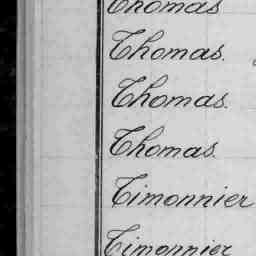 Thomas
Thomas.
Thomas.
Thomas.
Timonnier
Timonnier